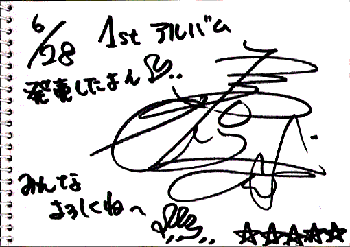 6/28 1st アルバム
発売したよん
みんな
よろしくね〜
☆☆☆☆☆